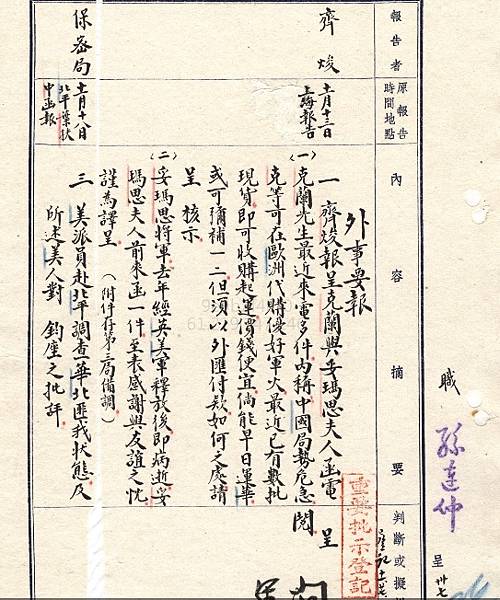 職 孫連仲 呈 卅七
報告者
原報告時間地點
內容摘要
判斷或擬
齊焌
十一月十三日
上海報告
外事要報
一 齊焌報呈克蘭與妥瑪思夫人函電
(一) 克蘭先生最近來電多件內稱中國局勢危急
克等可在歐洲代購優好軍火最近已有數批
現貨即可收購起運價錢便宜倘能早日運華
或可彌補一二但須以外匯付款如何之處請
呈 核示
(二) 妥瑪思將軍去年經英美軍釋放後即病逝妥
瑪思夫人前來函一件至表感謝與友誼之忱
謹為譯呈 (附件存第三局備調)
保密局
十一月十八日
北平葉狄
中函報
三 美派員赴北平調查華北匪我狀態及
所述美人對 鈞座之批評
重要批示登記
呈
閱